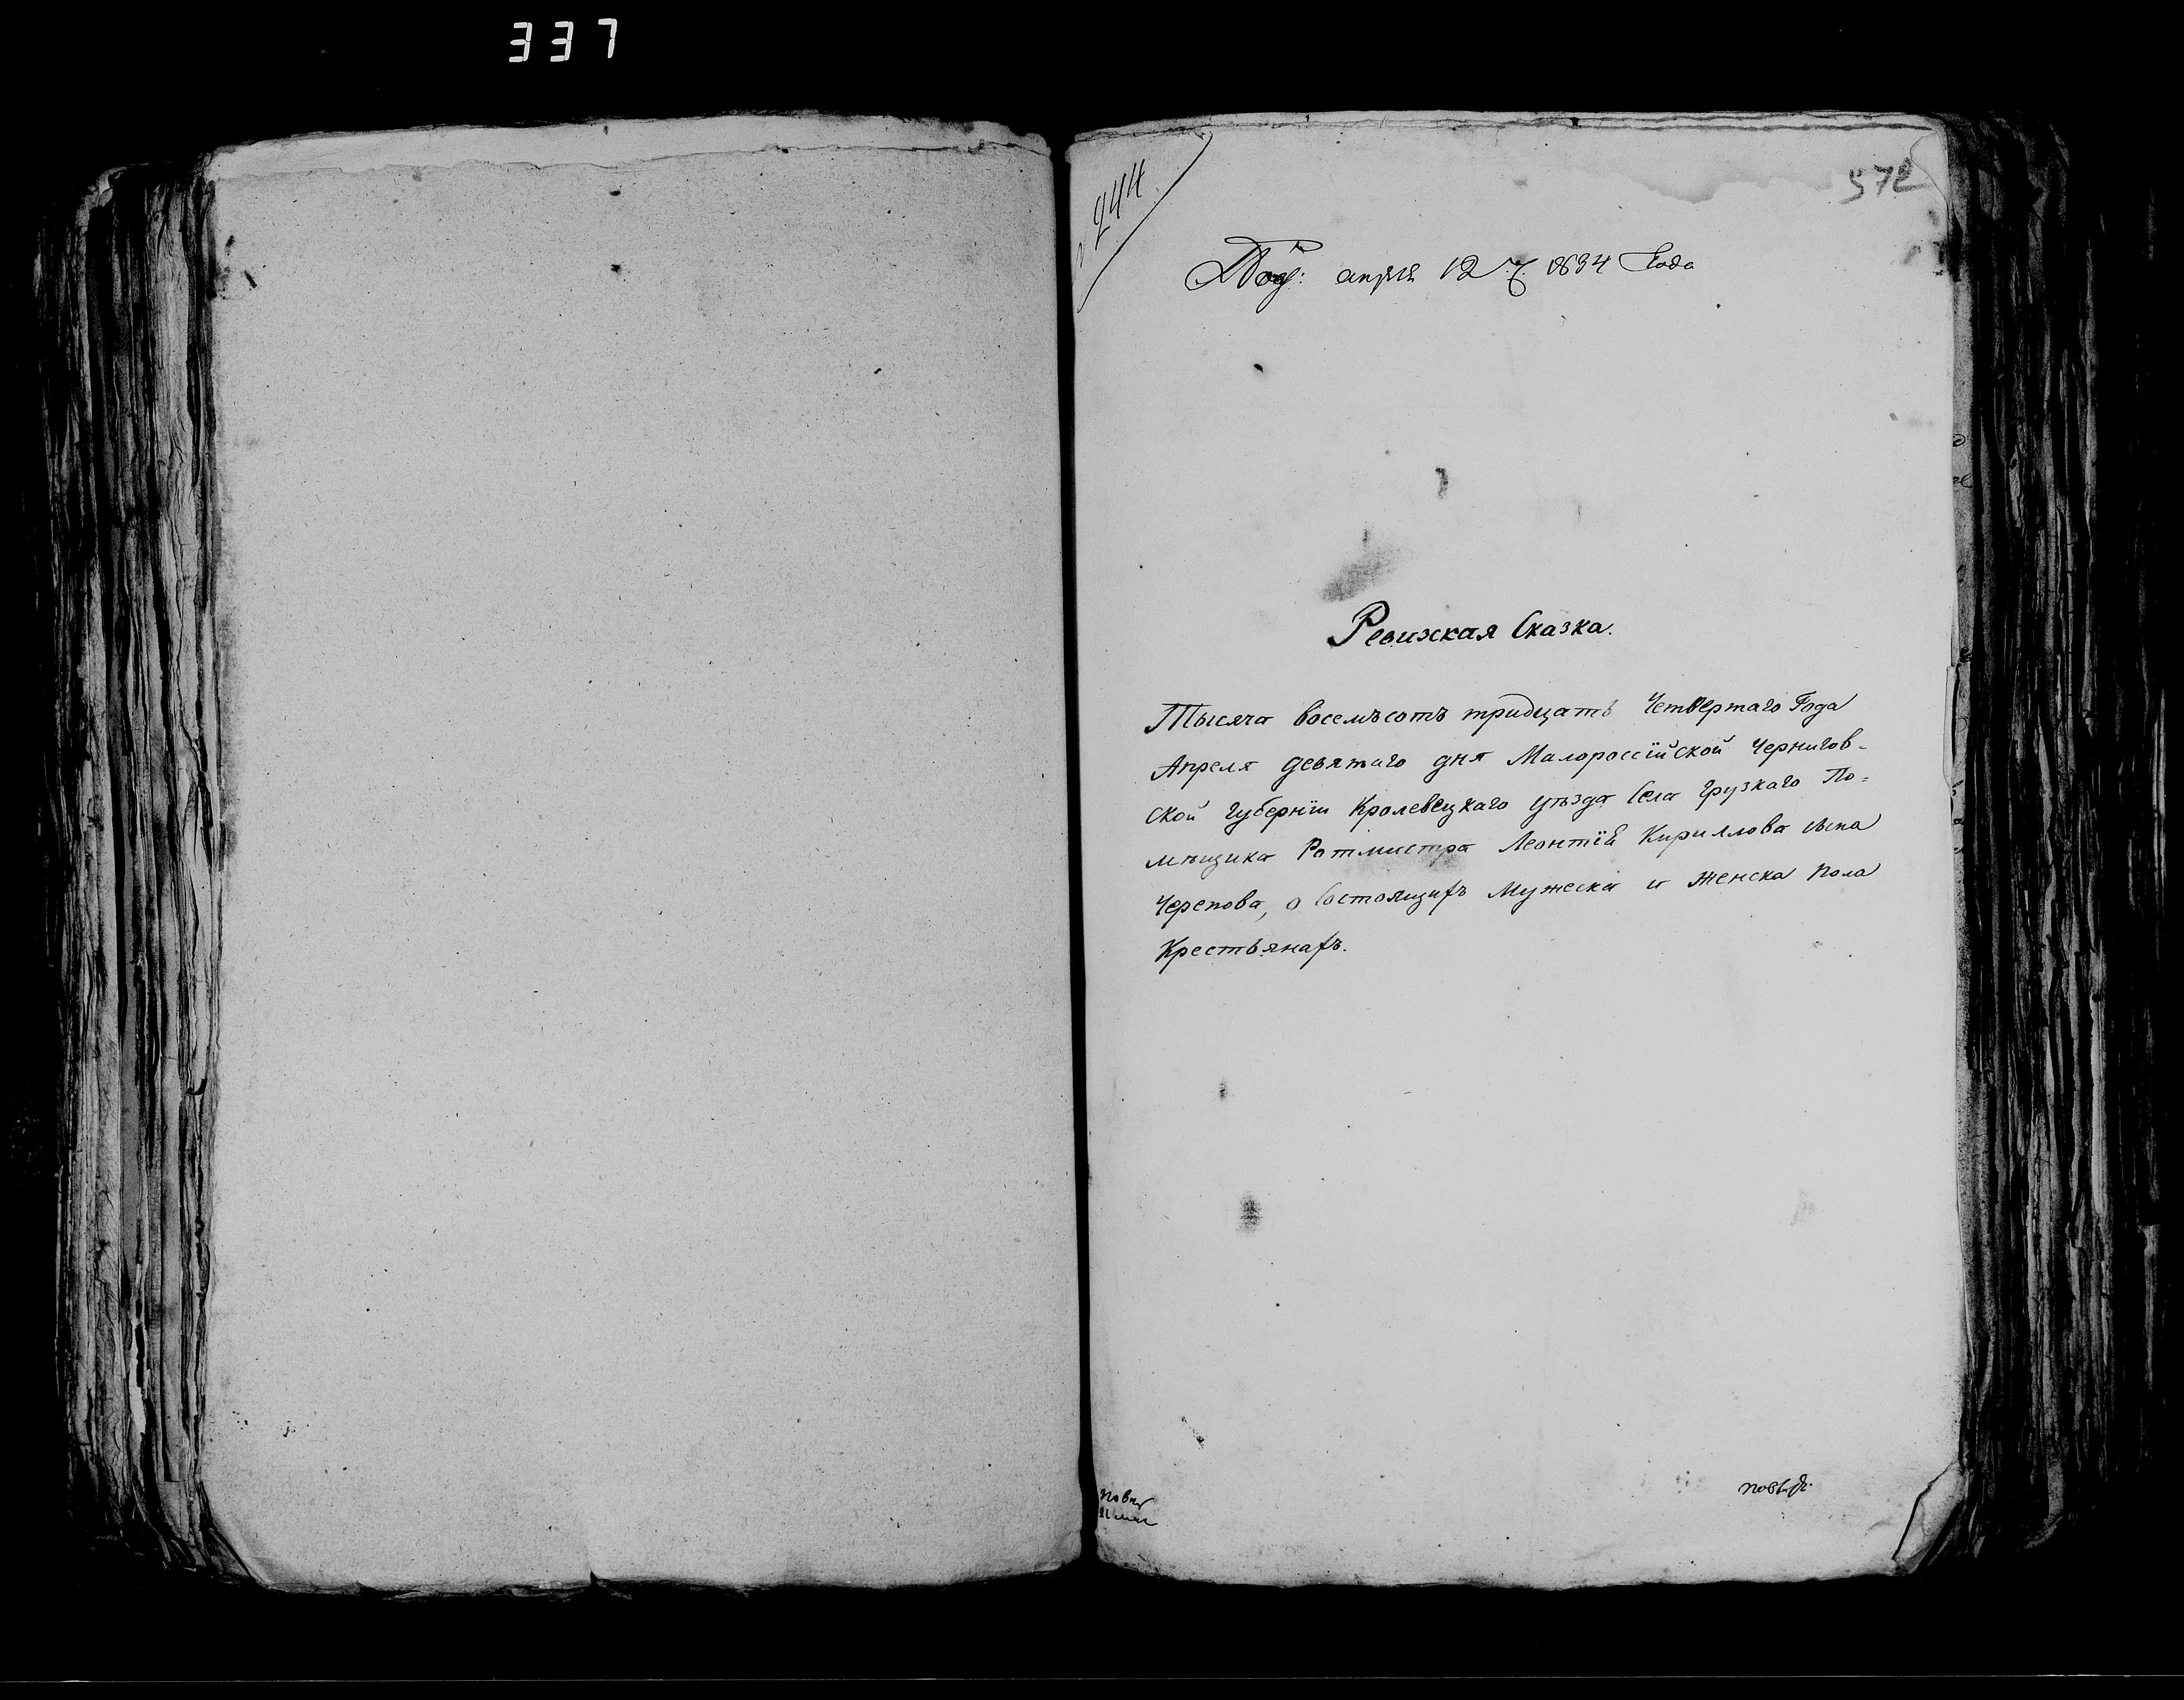 337
244
572
Под: апреля 12 ч. 1834 Года
Ревижская Сказка.
Тысяча восемьсотъ тридцать Четвертаго Года
Апреля девятаго дня Малороссійской Чернигов-
ской Губерніи Кролевецкаго уѣзда Села Грузкаго По-
мѣщика Ротмистра Леонтія Кириллова сына
Черепова, о Состоящихъ Мужеска и женска пола
Крестьянахъ.